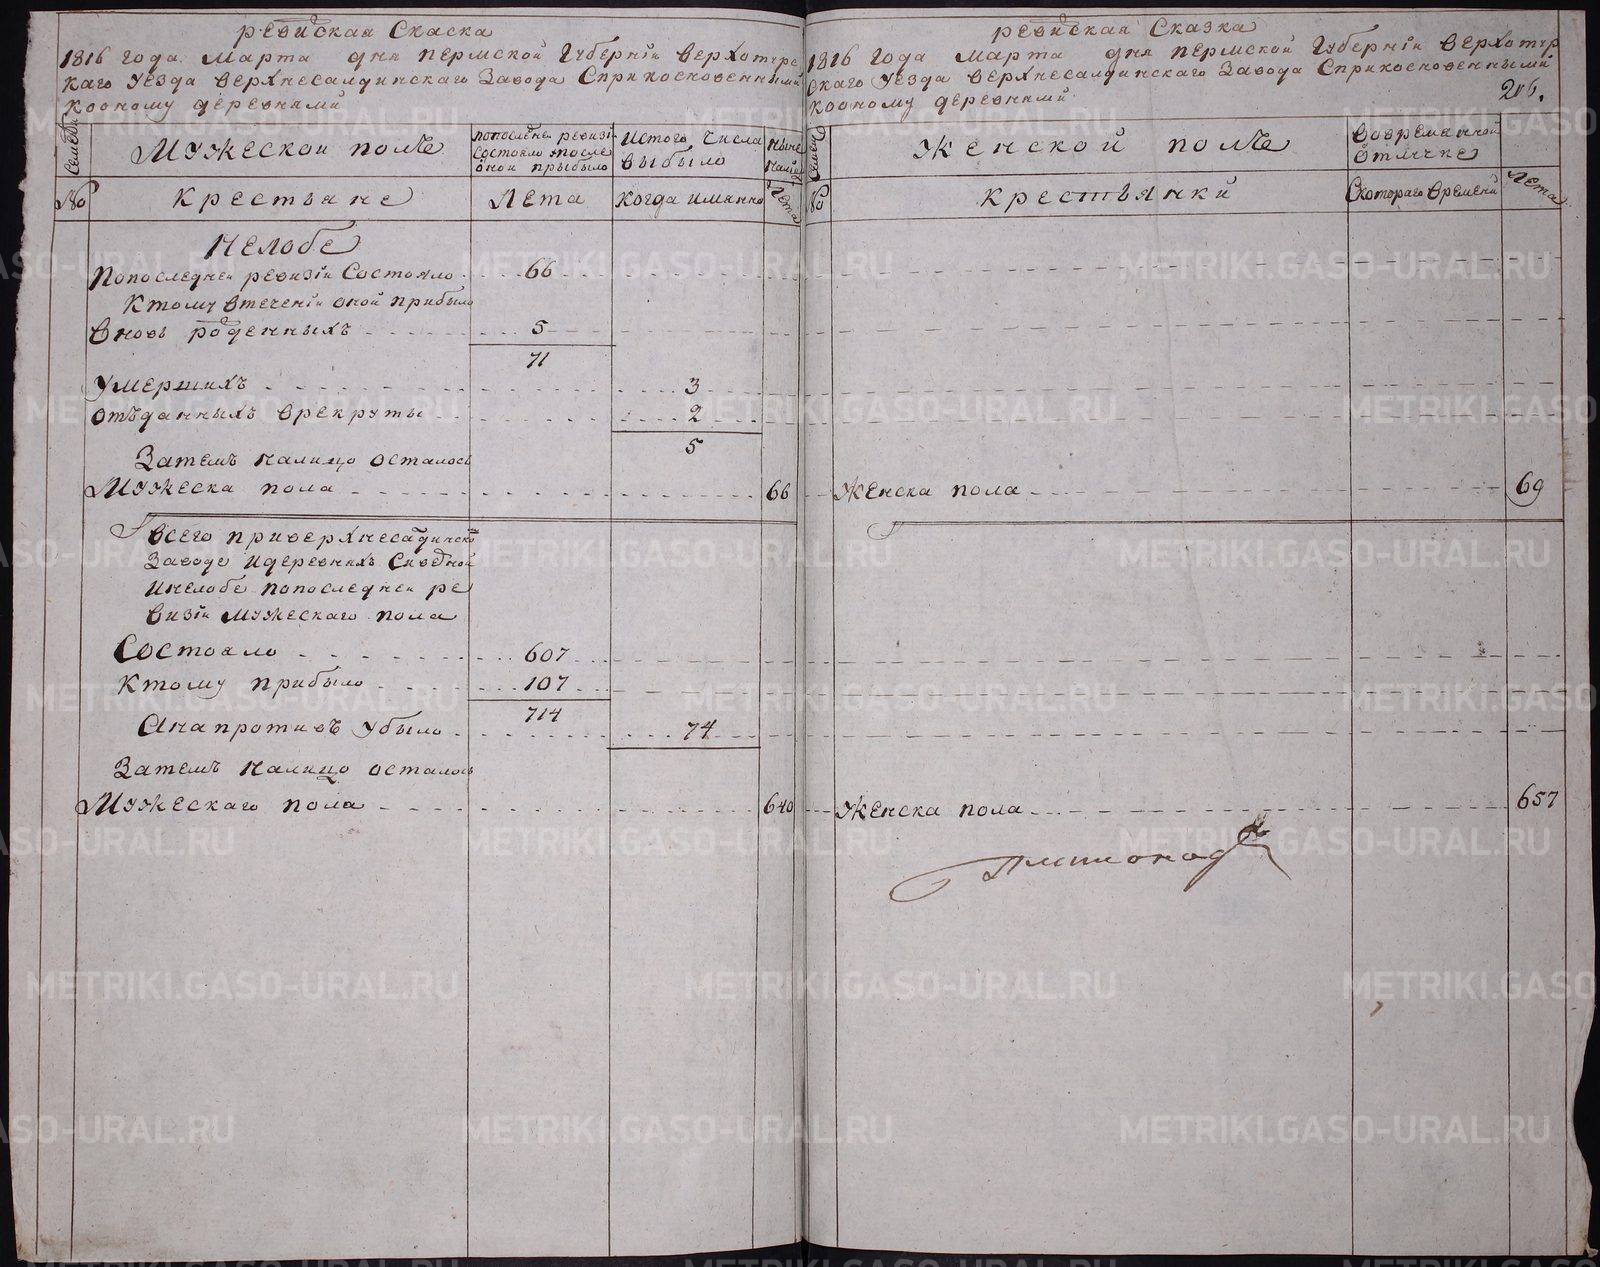 ревиская Скаска
1816 года. Марта дня пермской Губерніи верхотурс
каго Уезда верхнесалдинскаго Завода Сприкосновенными
ко оному деревнями
Семеи
Мужеской полъ
попоследней ревизіи
Состояло и после
оной прибыло
Истого Числа
выбыло
Ныне
на лицо
№
Крестьяне
Лета
Когда именно
Лета
Нелобе
Попоследней ревизіи Состояло 66
Ктому втеченіи оной прибыло
Вновь роденныхъ 5
71
Умершихъ 3
отъданныхъ врекруты 2
5
Затемъ налицо осталось
Мужеска пола 66
Всего приверхнесадинско
Заводе идеревняхъ
инелобе попоследней ре
визіи мужескаго пола
Состояло 607
Ктому прибыло 107
714
Анапротивъ Убыло 74
Затемъ налицо осталось
Мужескаго пола 640
ревиская Сказка
1816 года марта дня пермской Губерніи верхотур
скаго Уезда верхнесалдинскаго Завода Сприкосновенными
ко оному деревнями
206.
Семеи
Женской полъ
вовременной
отлучке
№
крестьянки
Скотораго времени
Лета
Женска пола 69
Женска пола 657
METRIKI.GASO-URAL.RU